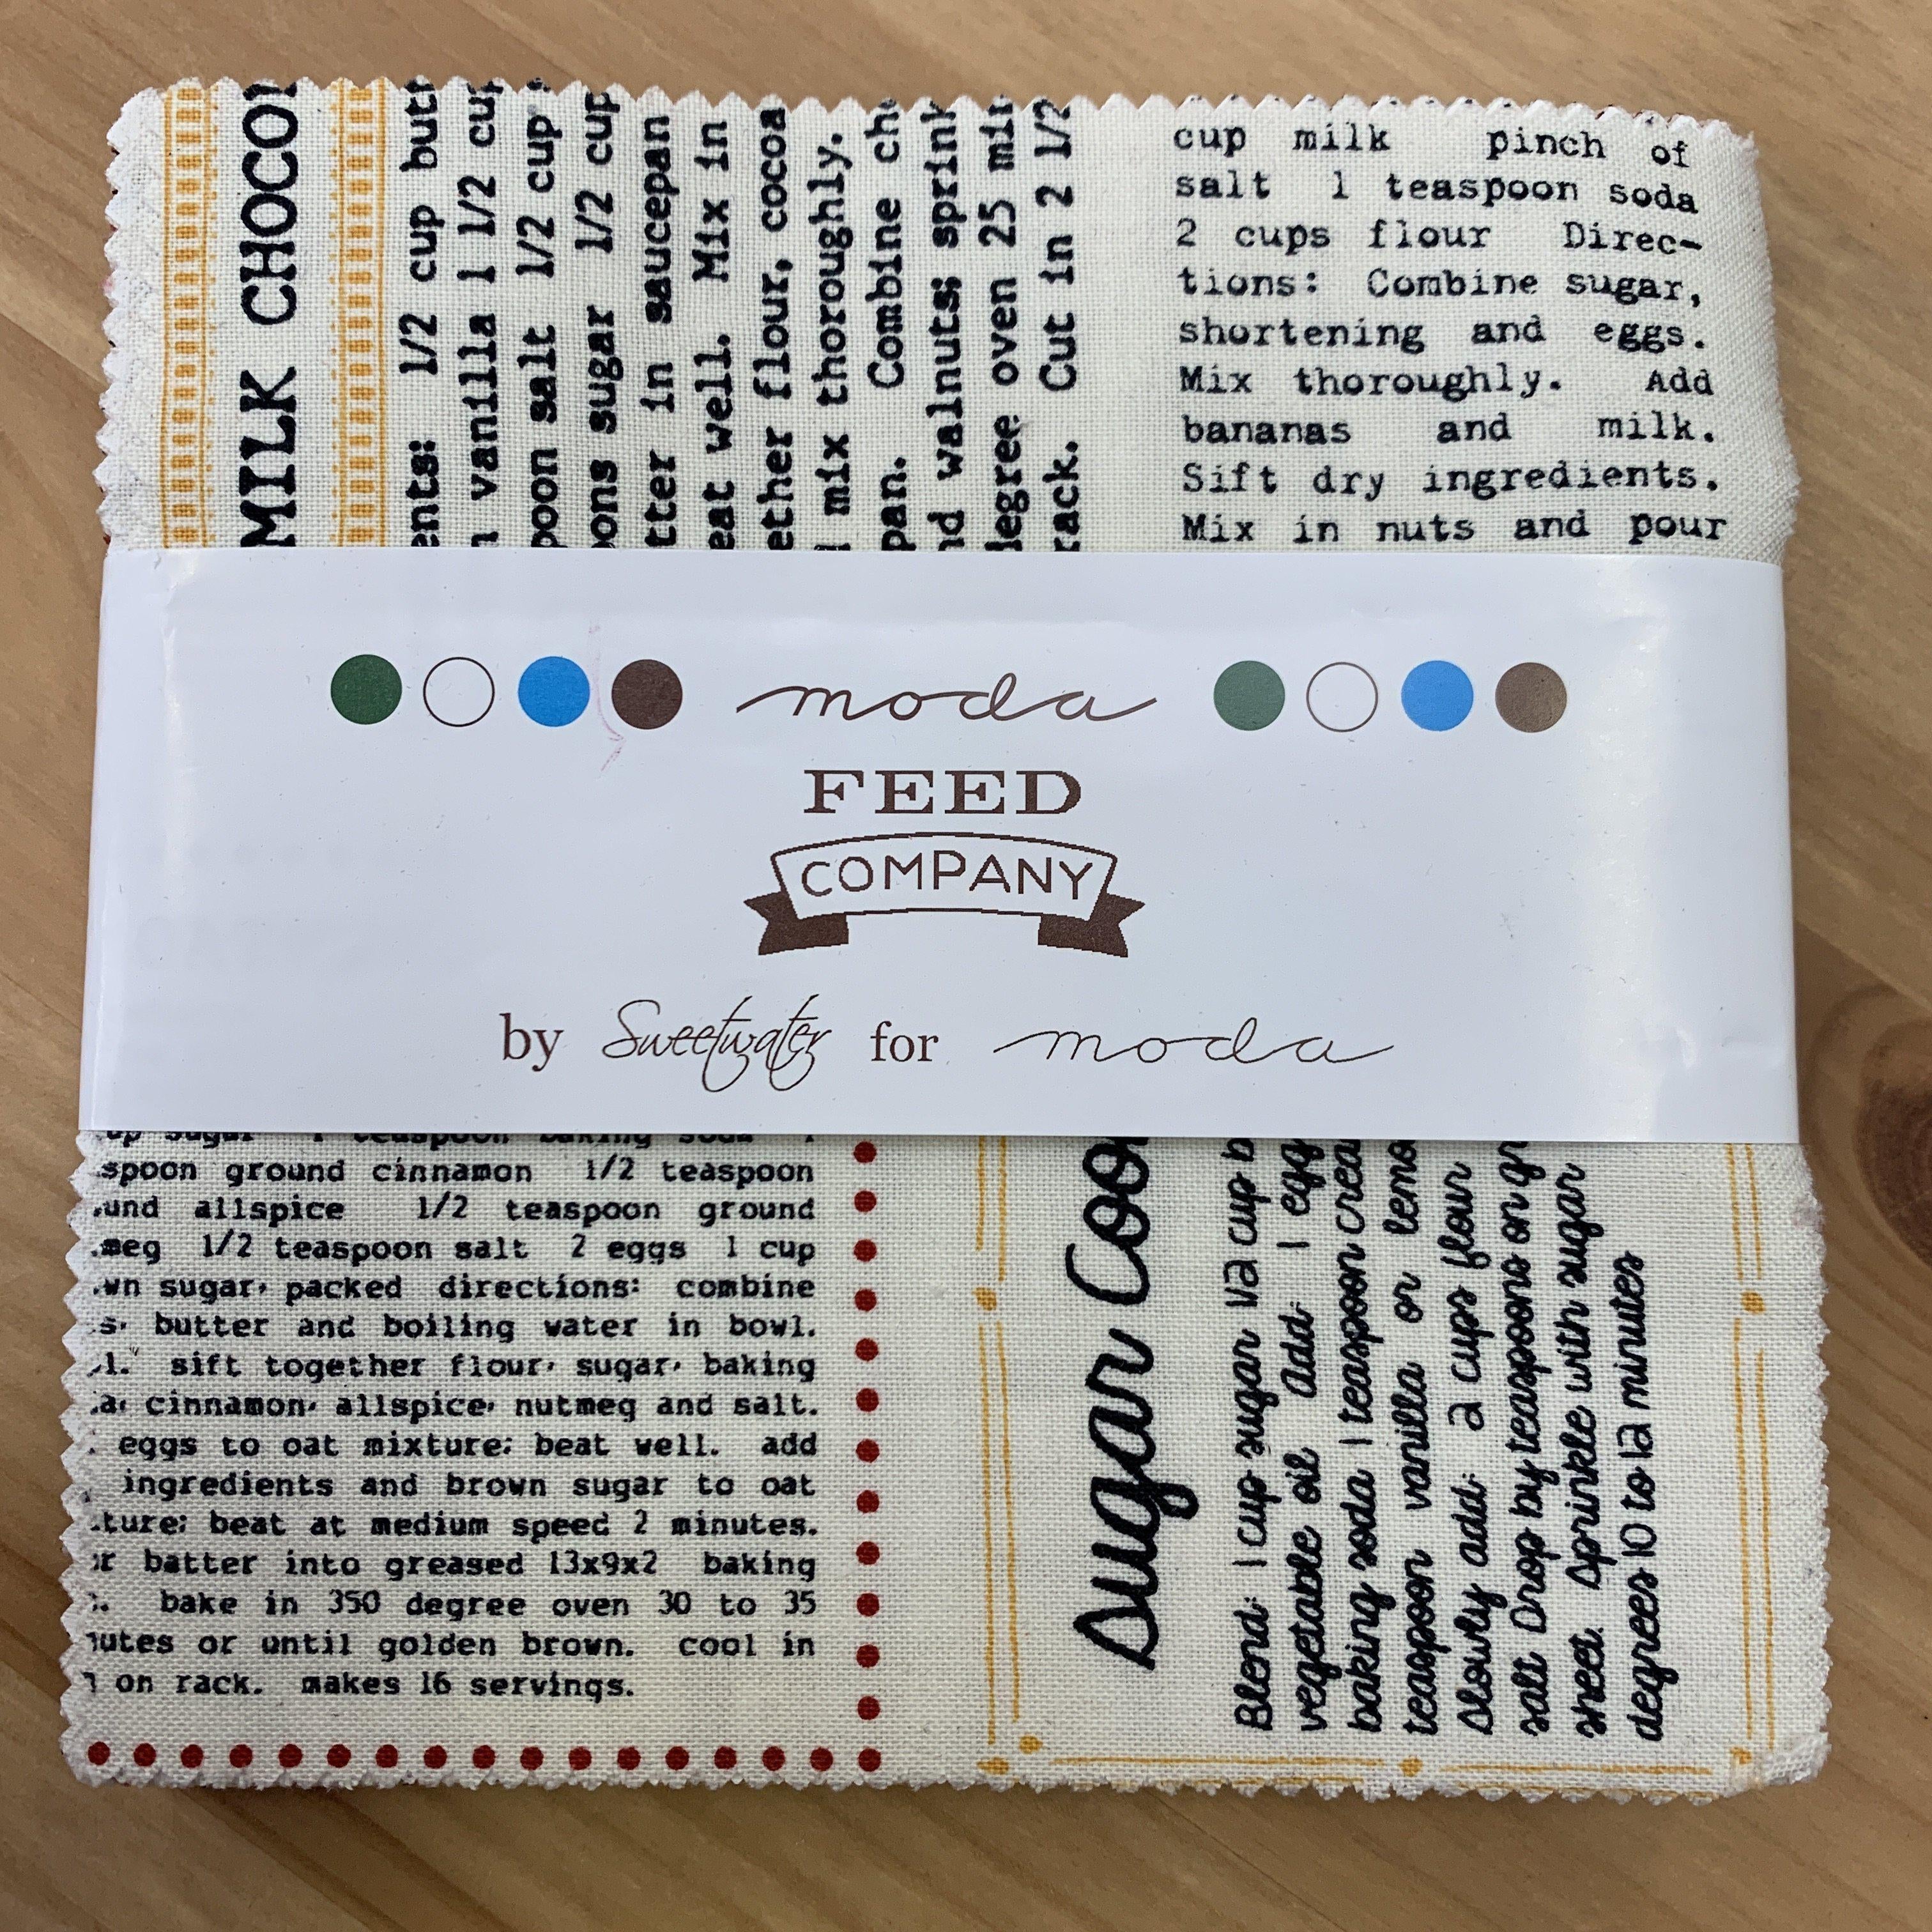 MILK
1/2 cup
vanilla 1 1/2
salt 1/2 cup
sugar 1/2 cup
in saucepan
well. Mix in
flour, cocoa
mix thoroughly.
pan. Combine
walnuts; 
oven 25
rack. Cut in 2 1/2
cup milk pinch of
salt 1 teaspoon soda
2 cups flour Direc-
tions: Combine sugar,
shortening and eggs.
Mix thoroughly. Add
bananas and milk.
Sift dry ingredients.
Mix in nuts and pour
moda
FEED
COMPANY
by Sweetwater for moda
sugar 1 teaspoon baking soda
spoon ground cinnamon 1/2 teaspoon
allspice 1/2 teaspoon ground
1/2 teaspoon salt 2 eggs 1 cup
sugar, packed directions: combine
butter and boiling water in bowl.
sift together flour, sugar, baking
cinnamon, allspice, nutmeg and salt.
eggs to oat mixture; beat well. add
ingredients and brown sugar to oat
beat at medium speed 2 minutes.
batter into greased 13x9x2 baking
bake in 350 degree oven 30 to 35
or until golden brown. cool in
on rack. makes 16 servings.
Sugar
Blend: 1 cup sugar 1/2 cup
vegetable oil Add: 1 egg
baking soda 1 teaspoon
teaspoon vanilla or
Slowly add: 2 cups flour
salt Drop by teaspoons on
sheet. Sprinkle with sugar
degrees 10 to 12 minutes